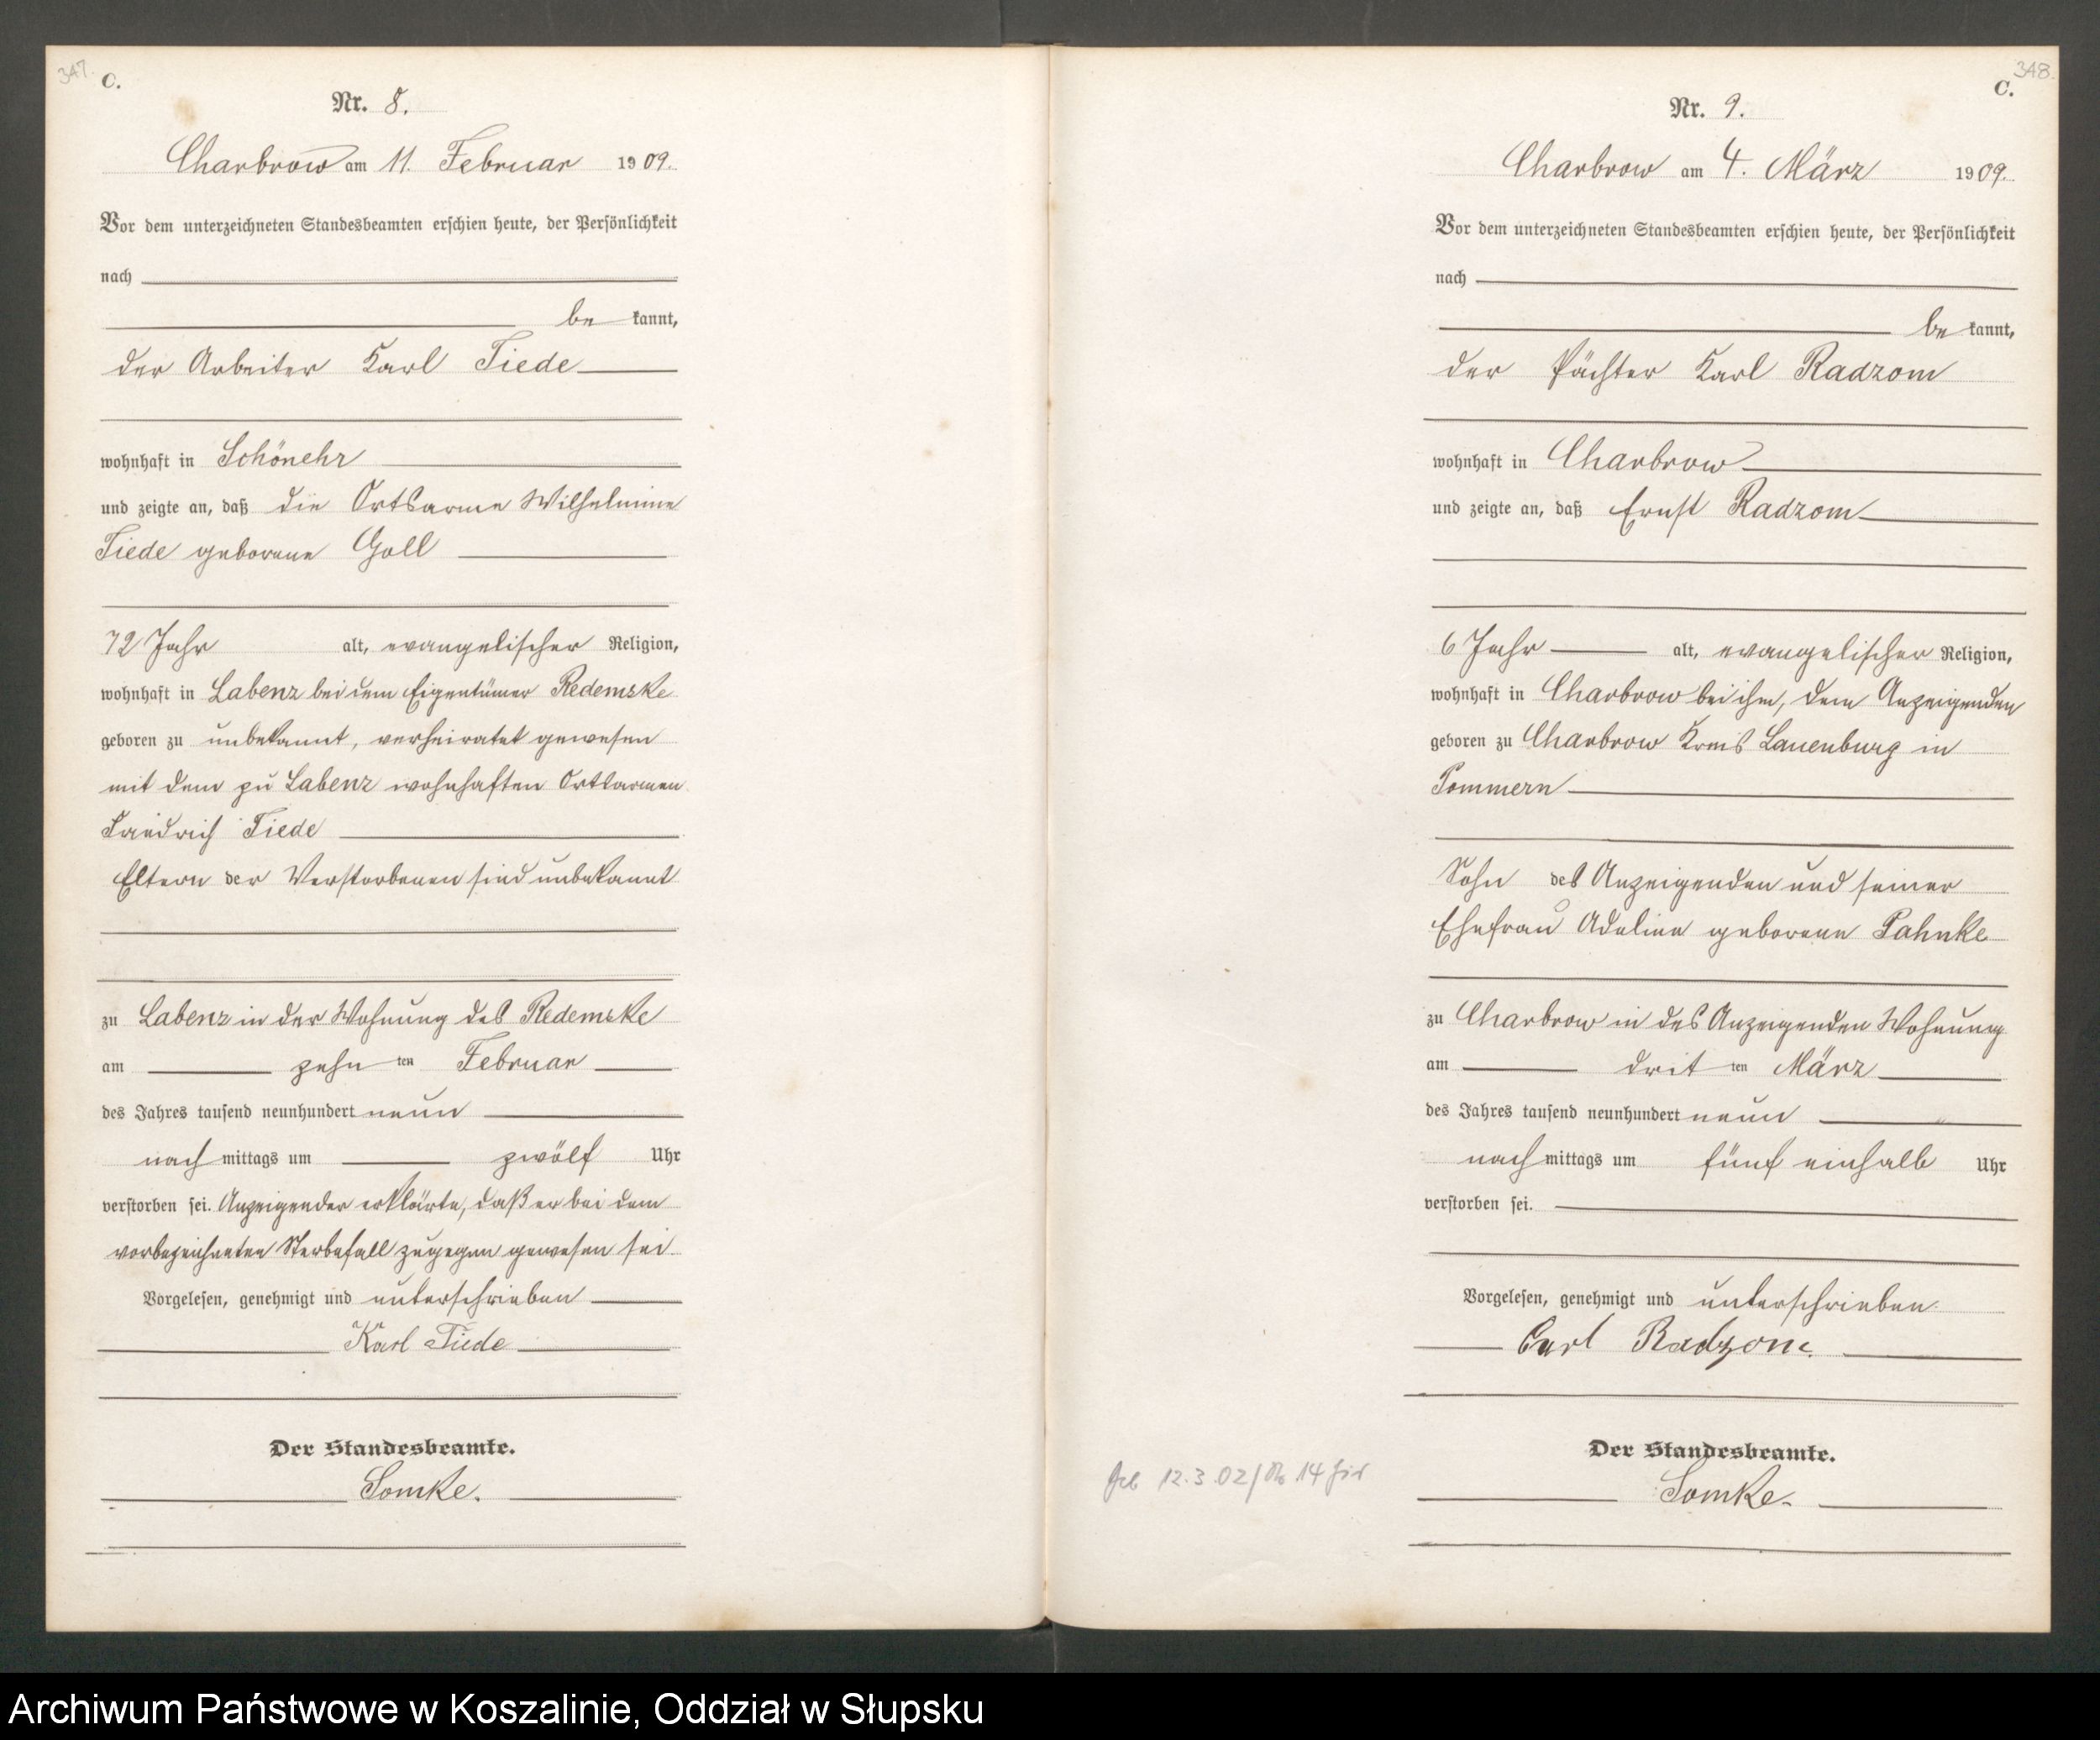 347.
C.
Nr. 8.
Charbrow am 11. Februar 1909.
Vor dem unterzeichneten Standesbeamten erschien heute, der Persönlichkeit
nach
be kannt,
der Arbeiter Karl Tiede
wohnhaft in Schönehr
und zeigte an, daß die Ortsarme Wilhelmine
Tiede geborene Goll
72 Jahr alt, evangelischer Religion,
wohnhaft in Labenz bei dem Eigentümer Redemske
geboren zu unbekannt, verheiratet gewesen
mit dem zu Labenz wohnhaften Ortsarmen
Friedrich Tiede
Eltern der Verstorbenen sind unbekannt
zu Labenz in der Wohnung des Redemske
am zehn ten Februar
des Jahres tausend neunhundert neun
nach mittags um zwölf Uhr
verstorben sei. Anzeigender erklärte, daß er bei dem
vorbezeichneten Sterbefall zugegen gewesen sei.
Vorgelesen, genehmigt und unterschrieben
Karl Tiede
Der Standesbeamte.
Somke.
348.
C.
Nr. 9.
Charbrow am 4. März 1909.
Vor dem unterzeichneten Standesbeamten erschien heute, der Persönlichkeit
nach
be kannt,
der Pächter Karl Radzom
wohnhaft in Charbrow
und zeigte an, daß Ernst Radzom
6 Jahr alt, evangelischer Religion,
wohnhaft in Charbrow bei ihm, dem Anzeigenden
geboren zu Charbrow Kreis Lauenburg in
Pommern
Sohn des Anzeigenden und seiner
Ehefrau Adeline geborene Pahnke
zu Charbrow in des Anzeigenden Wohnung
am drit ten März
des Jahres tausend neunhundert neun
nach mittags um fünf einhalb Uhr
verstorben sei.
Vorgelesen, genehmigt und unterschrieben.
Carl Radzom.
Der Standesbeamte.
Somke.
12.3.02 / 14
Archiwum Państwowe w Koszalinie, Oddział w Słupsku